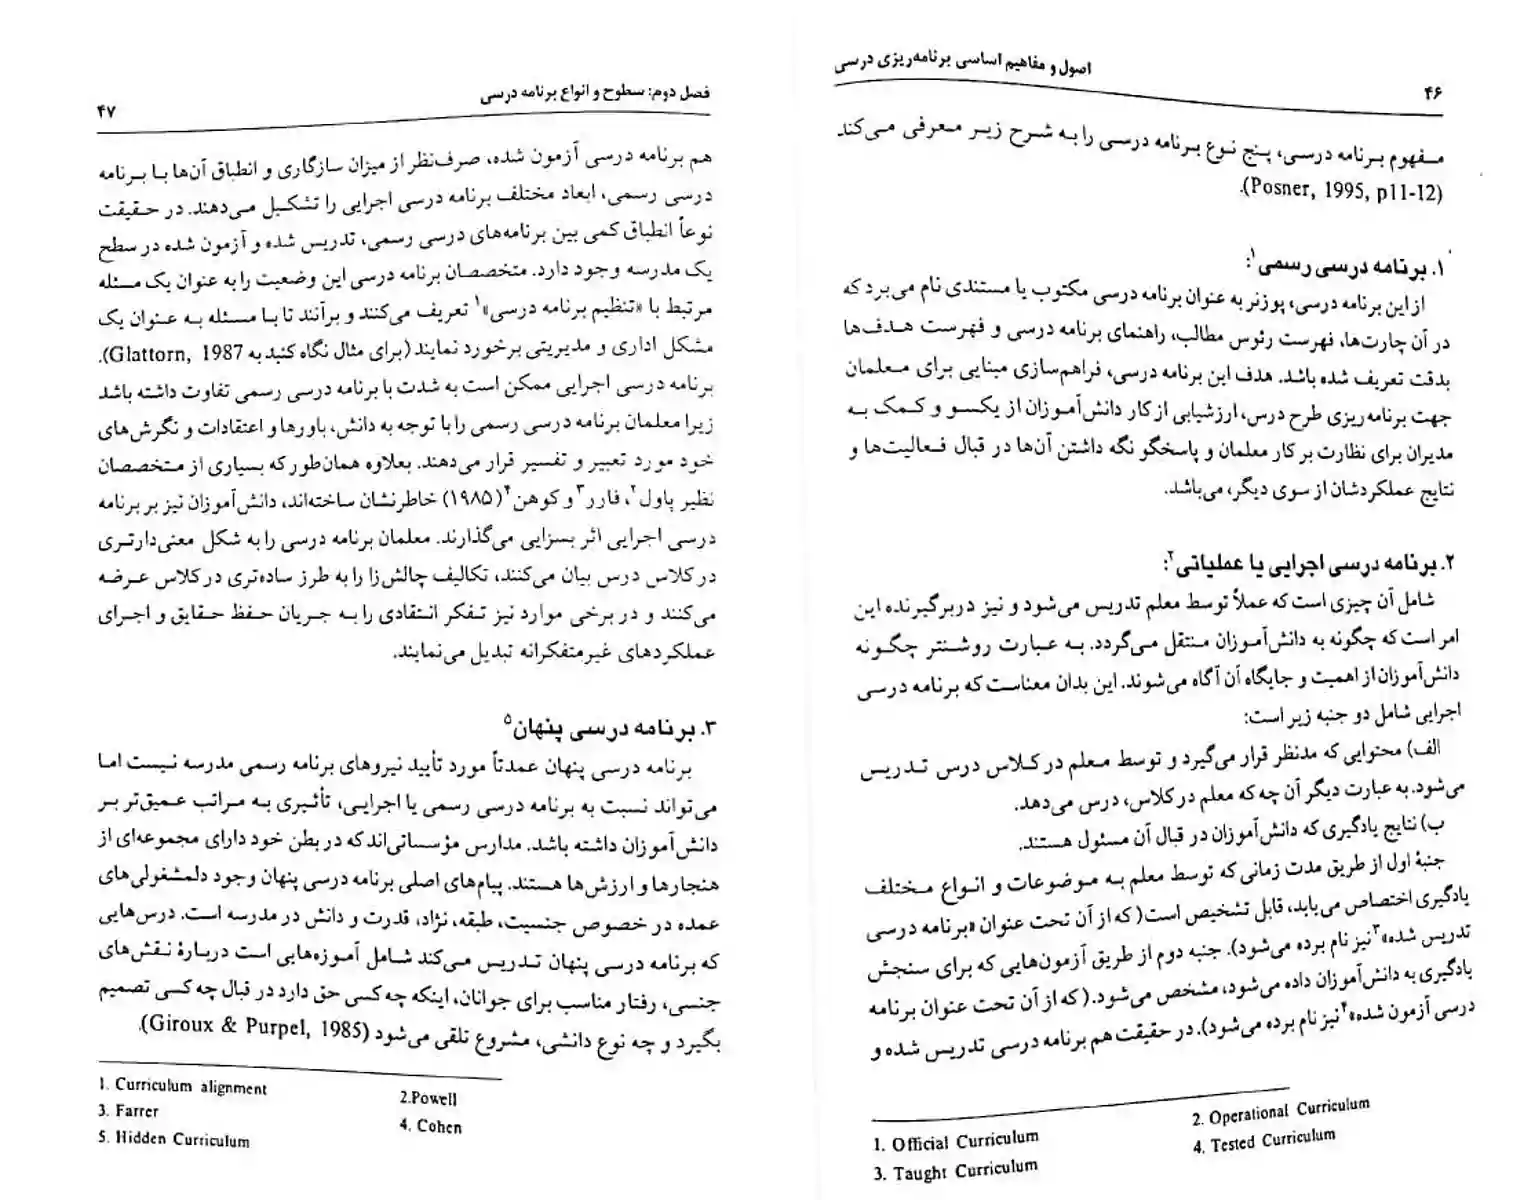 اصول و مفاهیم اساسی برنامه‌ریزی درسی
۴۶
مفهوم برنامه درسی، پنج نوع برنامه درسی را به شرح زیر معرفی می‌کند
(Posner, 1995, p11-12).
۱. برنامه درسی رسمی۱:
از این برنامه درسی، پوزنر به عنوان برنامه درسی مکتوب یا مستندی نام می‌برد که
در آن چارت‌ها، فهرست رئوس مطالب، راهنمای برنامه درسی و فهرست هدف‌ها
بدقت تعریف شده باشد. هدف این برنامه درسی، فراهم‌سازی مبنایی برای معلمان
جهت برنامه‌ریزی طرح درس، ارزشیابی از کار دانش‌آموزان از یکسو و کمک به
مدیران برای نظارت بر کار معلمان و پاسخگو نگه داشتن آن‌ها در قبال فعالیت‌ها و
نتایج عملکردشان از سوی دیگر، می‌باشد.
۲. برنامه درسی اجرایی یا عملیاتی۲:
شامل آن چیزی است که عملاً توسط معلم تدریس می‌شود و نیز دربرگیرنده این
امر است که چگونه به دانش‌آموزان منتقل می‌گردد. به عبارت روشنتر چگونه
دانش‌آموزان از اهمیت و جایگاه آن آگاه می‌شوند. این بدان معناست که برنامه درسی
اجرایی شامل دو جنبه زیر است:
الف) محتوایی که مدنظر قرار می‌گیرد و توسط معلم در کلاس درس تدریس
می‌شود. به عبارت دیگر آن چه که معلم در کلاس، درس می‌دهد.
ب) نتایج یادگیری که دانش‌آموزان در قبال آن مسئول هستند.
جنبهٔ اول از طریق مدت زمانی که توسط معلم به موضوعات و انواع مختلف
یادگیری اختصاص می‌یابد، قابل تشخیص است( که از آن تحت عنوان «برنامه درسی
تدریس شده»۳ نیز نام برده می‌شود). جنبه دوم از طریق آزمون‌هایی که برای سنجش
یادگیری به دانش‌آموزان داده می‌شود، مشخص می‌شود.( که از آن تحت عنوان برنامه
درسی آزمون شده»۴ نیز نام برده می‌شود). در حقیقت هم برنامه درسی تدریس شده و
1. Official Curriculum
2. Operational Curriculum
3. Taught Curriculum
4. Tested Curriculum
فصل دوم: سطوح و انواع برنامه درسی
۴۷
هم برنامه درسی آزمون شده، صرف‌نظر از میزان سازگاری و انطباق آن‌ها با برنامه
درسی رسمی، ابعاد مختلف برنامه درسی اجرایی را تشکیل می‌دهند. در حقیقت
نوعاً انطباق کمی بین برنامه‌های درسی رسمی، تدریس شده و آزمون شده در سطح
یک مدرسه وجود دارد. متخصصان برنامه درسی این وضعیت را به عنوان یک مسئله
مرتبط با «تنظیم برنامه درسی»۱ تعریف می‌کنند و برآنند تا با مسئله به عنوان یک
مشکل اداری و مدیریتی برخورد نمایند (برای مثال نگاه کنید به Glattorn, 1987).
برنامه درسی اجرایی ممکن است به شدت با برنامه درسی رسمی تفاوت داشته باشد
زیرا معلمان برنامه درسی رسمی را با توجه به دانش، باورها و اعتقادات و نگرش‌های
خود مورد تعبیر و تفسیر قرار می‌دهند. بعلاوه همان‌طور که بسیاری از متخصصان
نظیر پاول۲، فارر۳ و کوهن۴ (۱۹۸۵) خاطرنشان ساخته‌اند، دانش‌آموزان نیز بر برنامه
درسی اجرایی اثر بسزایی می‌گذارند. معلمان برنامه درسی را به شکل معنی‌دارتری
در کلاس درس بیان می‌کنند، تکالیف چالش‌زا را به طرز ساده‌تری در کلاس عرضه
می‌کنند و در برخی موارد نیز تفکر انتقادی را به جریان حفظ حقایق و اجرای
عملکردهای غیرمتفکرانه تبدیل می‌نمایند.
۳. برنامه درسی پنهان۵
برنامه درسی پنهان عمدتاً مورد تأیید نیروهای برنامه رسمی مدرسه نیست اما
می‌تواند نسبت به برنامه درسی رسمی یا اجرایی، تأثیری به مراتب عمیق‌تر بر
دانش‌آموزان داشته باشد. مدارس مؤسساتی‌اند که در بطن خود دارای مجموعه‌ای از
هنجارها و ارزش‌ها هستند. پیام‌های اصلی برنامه درسی پنهان وجود دلمشغولی‌های
عمده در خصوص جنسیت، طبقه، نژاد، قدرت و دانش در مدرسه است. درس‌هایی
که برنامه درسی پنهان تدریس می‌کند شامل آموزه‌هایی است دربارهٔ نقش‌های
جنسی، رفتار مناسب برای جوانان، اینکه چه کسی حق دارد در قبال چه کسی تصمیم
بگیرد و چه نوع دانشی، مشروع تلقی می‌شود (Giroux & Purpel, 1985).
1. Curriculum alignment
2.Powell
3. Farrer
4. Cohen
5. Hidden Curriculum